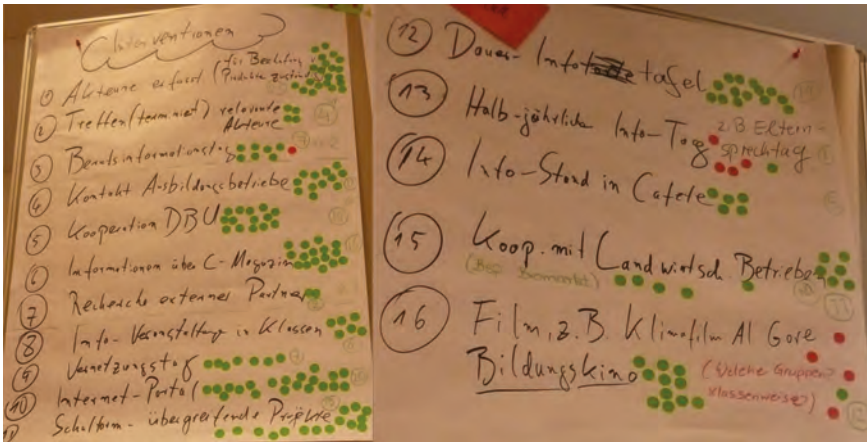 Interventionen
① Akteure erfasst (für Beschaffung
Produkte zuständig
② Treffen (terminiert) relevante
Akteure
③ Berufsinformationstag
④ Kontakt Ausbildungsbetriebe
⑤ Kooperation DBU
⑥ Informationen über C-Magazin
⑦ Recherche externer Partner
⑧ Info-Veranstaltung in Klassen
⑨ Vernetzungstag
⑩ Internet-Portal
11 Schulform-übergreifende Projekte
⑫ Dauer-Info tafel
⑬ Halb-jährliche Info-Tag z.B Eltern-
sprechtag
⑭ Info-Stand in Cafete
⑮ Koop. mit Landwirtsch. Betrieben
⑯ Film, z.B. Klimafilm Al Gore
Bildungskino (Welche Gruppen?
klassenweise?)